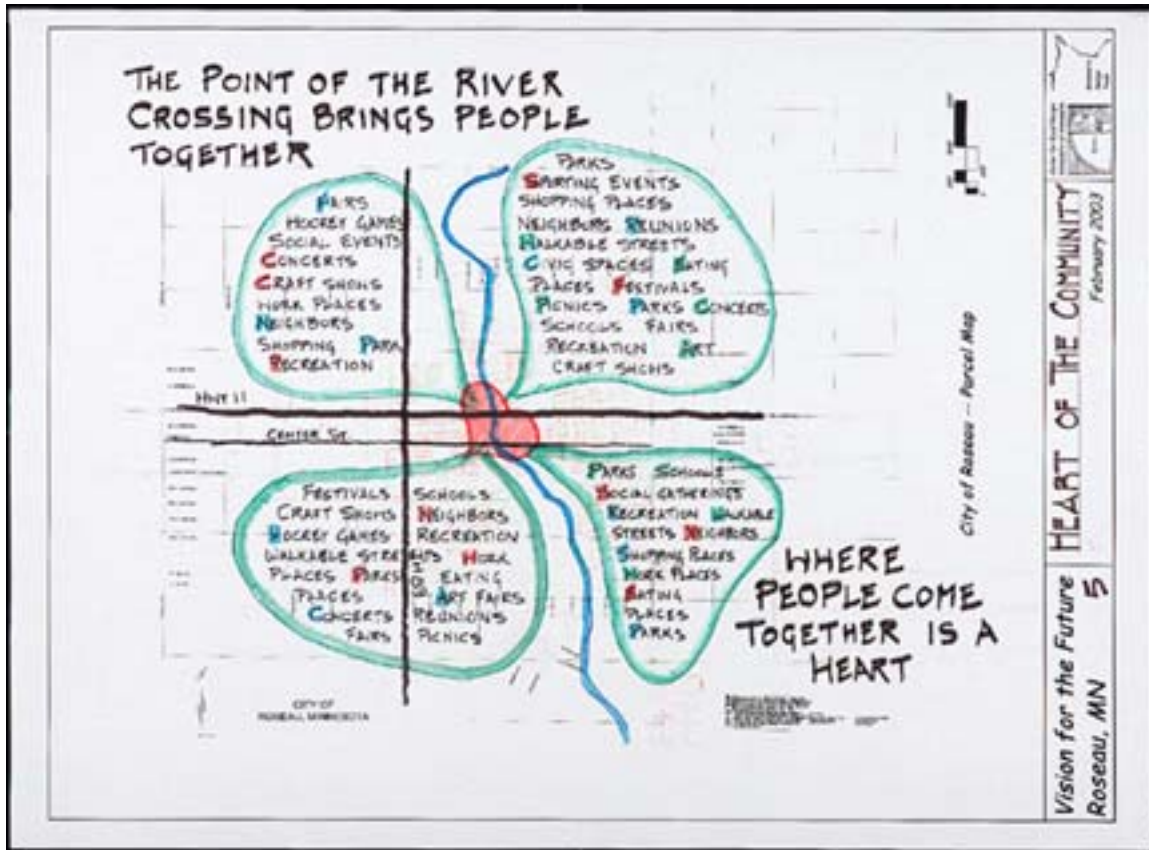 THE POINT OF THE RIVER
CROSSING BRINGS PEOPLE
TOGETHER
FAIRS
HOCKEY GAMES
SOCIAL EVENTS
CONCERTS
CRAFT SHOWS
WORK PLACES
NEIGHBORS
SHOPPING PARK
RECREATION
PARKS
SPORTING EVENTS
SHOPPING PLACES
NEIGHBORS REUNIONS
WALKABLE STREETS
CIVIC SPACES EATING
PLACES FESTIVALS
PICNICS PARKS CONCERTS
SCHOOLS FAIRS
RECREATION ART
CRAFT SHOWS
HWY 11
CENTER ST.
FESTIVALS SCHOOLS
CRAFT SHOWS NEIGHBORS
HOCKEY GAMES RECREATION
WALKABLE STREETS WORK
PLACES PARKS EATING
PLACES ART FAIRS
CONCERTS REUNIONS
FAIRS PICNICS
PARKS SCHOOLS
SOCIAL GATHERINGS
RECREATION WALKABLE
STREETS NEIGHBORS
SHOPPING PLACES
WORK PLACES
EATING
PLACES
PARKS
WHERE
PEOPLE COME
TOGETHER IS A
HEART
CITY OF
ROSEAU, MINNESOTA
City of Roseau – Parcel Map
HEART OF THE COMMUNITY
February 2003
Vision for the Future
Roseau, MN 5